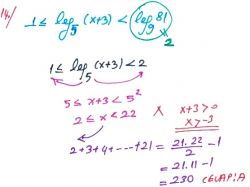 14/ 1 ≤ log₅ (x+3) < log₉ 81
2
1 ≤ log₅ (x+3) < 2
5 ≤ x+3 < 5²
x+3 > 0
2 ≤ x < 22
x > -3
2+3+4+----+21 = 21.22/2 - 1
= 21.11 - 1
= 230 CEVAP: A